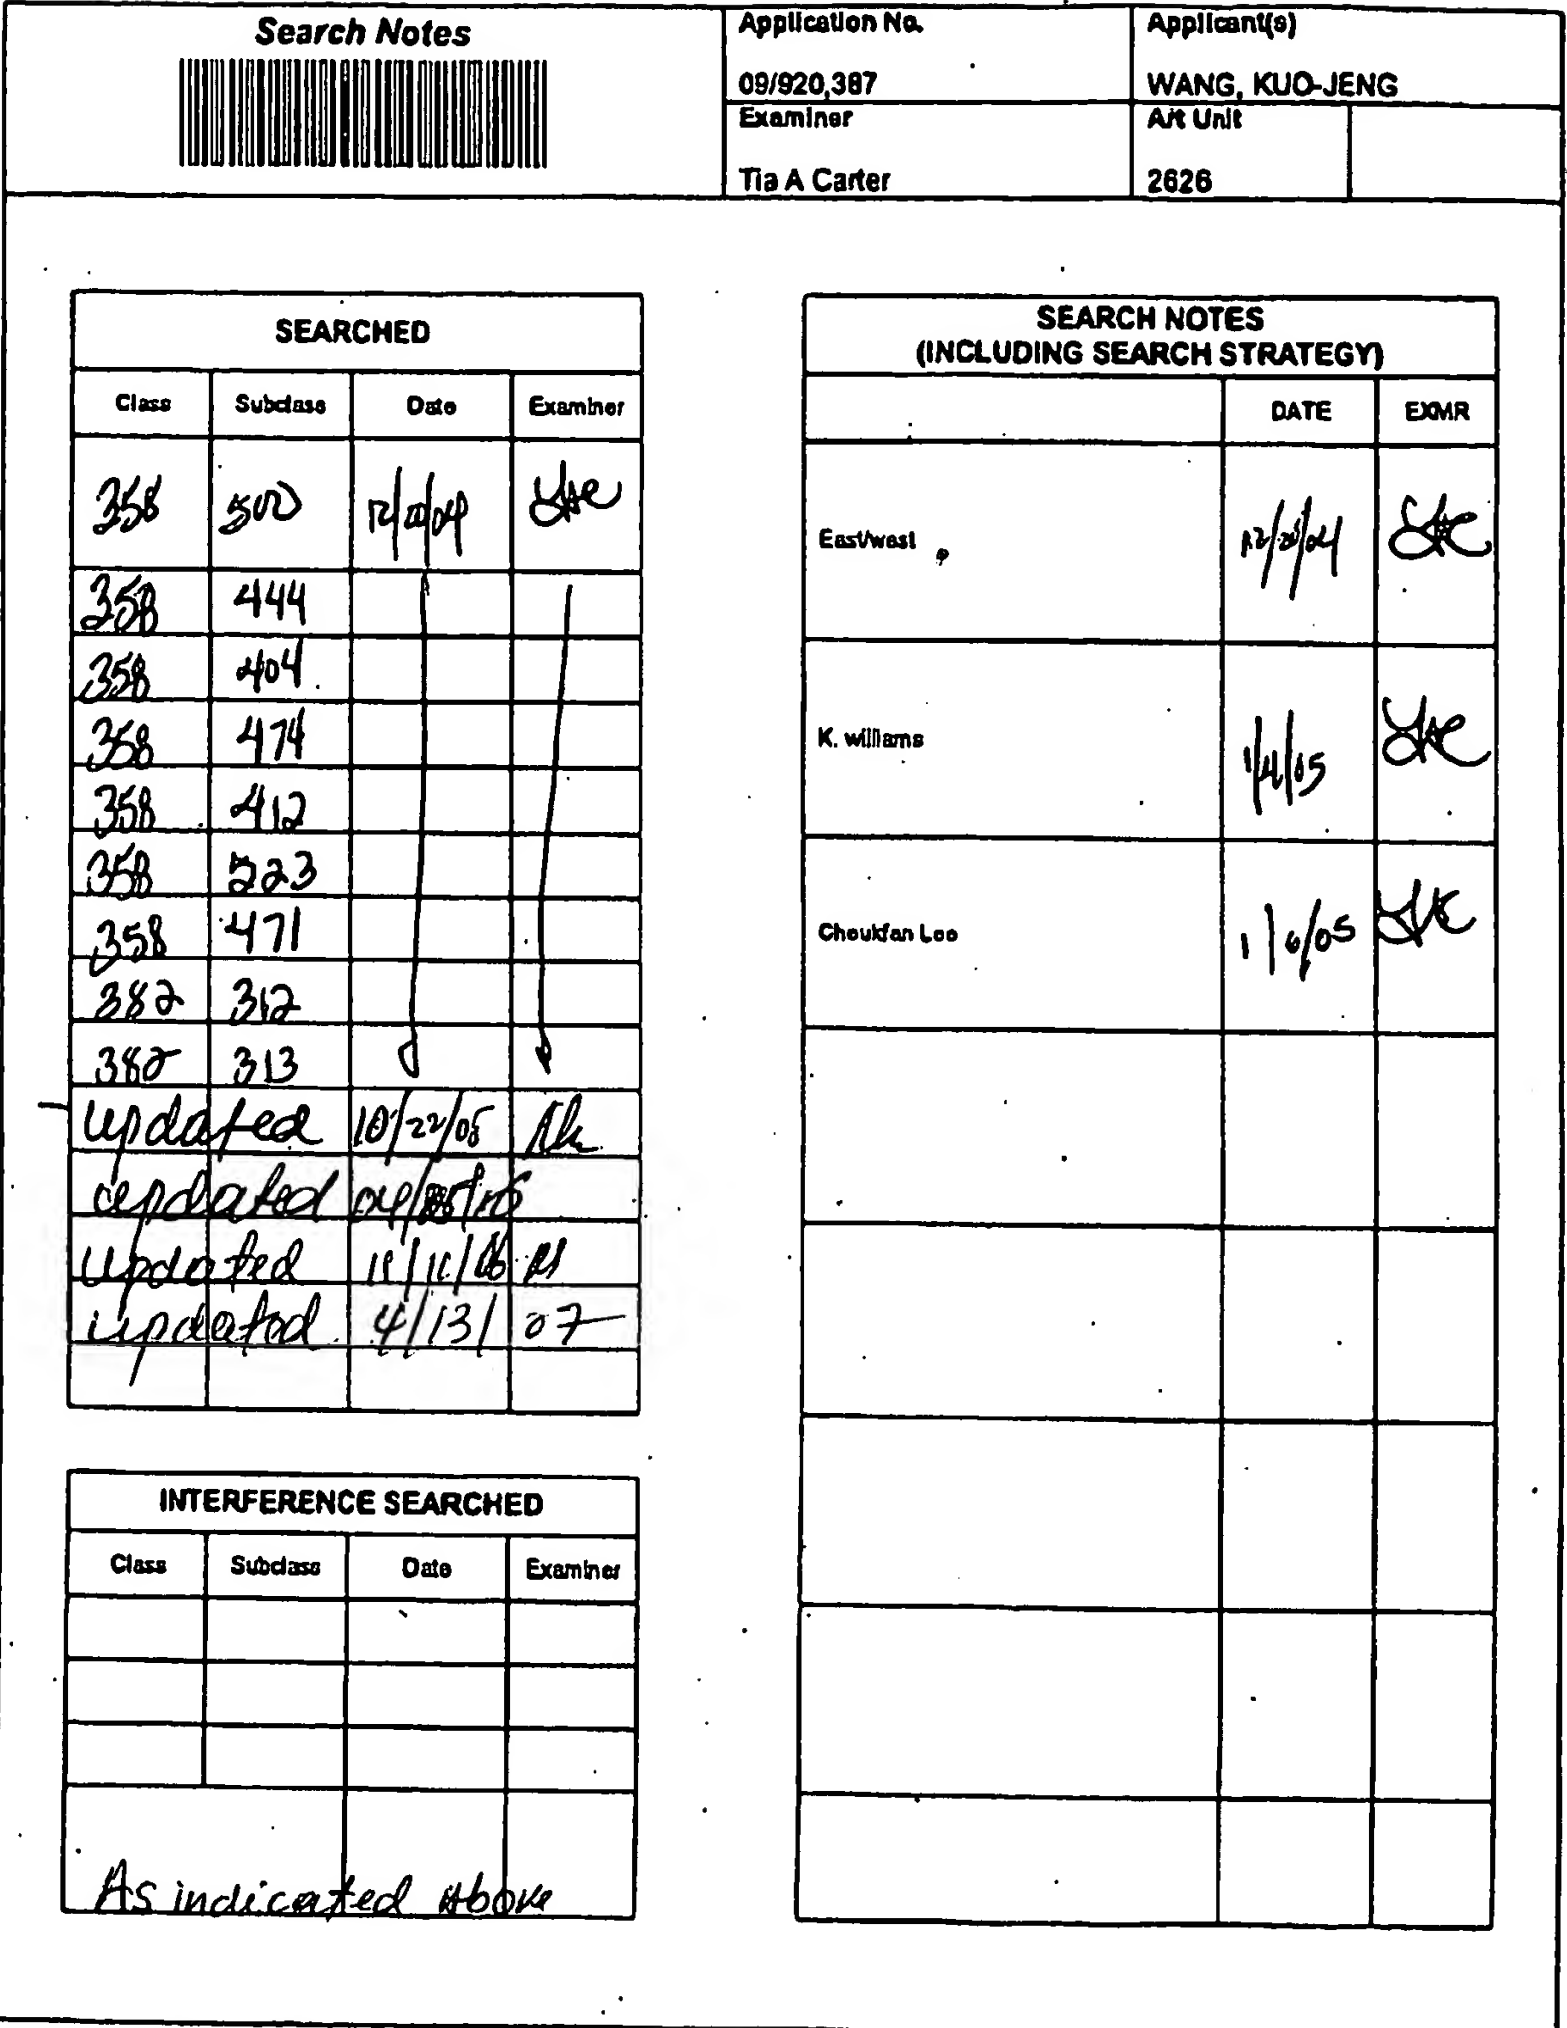 Search Notes
Application No.
09/920,387
Applicant(s)
WANG, KUO-JENG
Examiner
Tia A Carter
Art Unit
2626
SEARCHED
Class Subclass Date Examiner
358 500 12/20/04
358 444
358 404
358 474
358 412
358
358 471
382 312
382 313
updated 10/22/05
updated
updated
updated 4/13/07
INTERFERENCE SEARCHED
Class Subclass Date Examiner
As indicated above
SEARCH NOTES
(INCLUDING SEARCH STRATEGY)
DATE EXMR
East/west
K. williams 1/4/05
Choukfan Lee 1/6/05